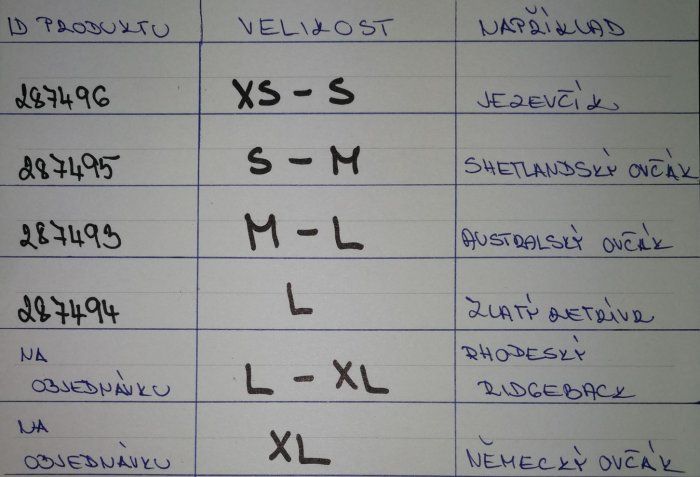 ID PRODUKTU VELIKOST NAPŘÍKLAD
287496 XS - S JEZEVČÍK
287495 S - M SHETLANDSKÝ OVČÁK
287493 M - L AUSTRALSKÝ OVČÁK
287494 L ZLATÝ RETRÍVR
NA OBJEDNÁVKU L - XL RHODESKÝ RIDGEBACK
NA OBJEDNÁVKU XL NĚMECKÝ OVČÁK